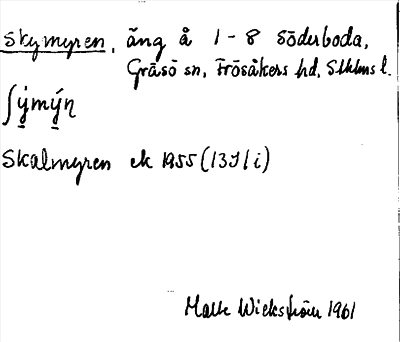 Skymyren, äng å 1-8 Söderboda,
Gräsö sn, Frösåkers hd, Sthlms l.
ʃý̱mý̱n
Skalmyren ek 1955 (13I1i)
Malte Wickström 1961